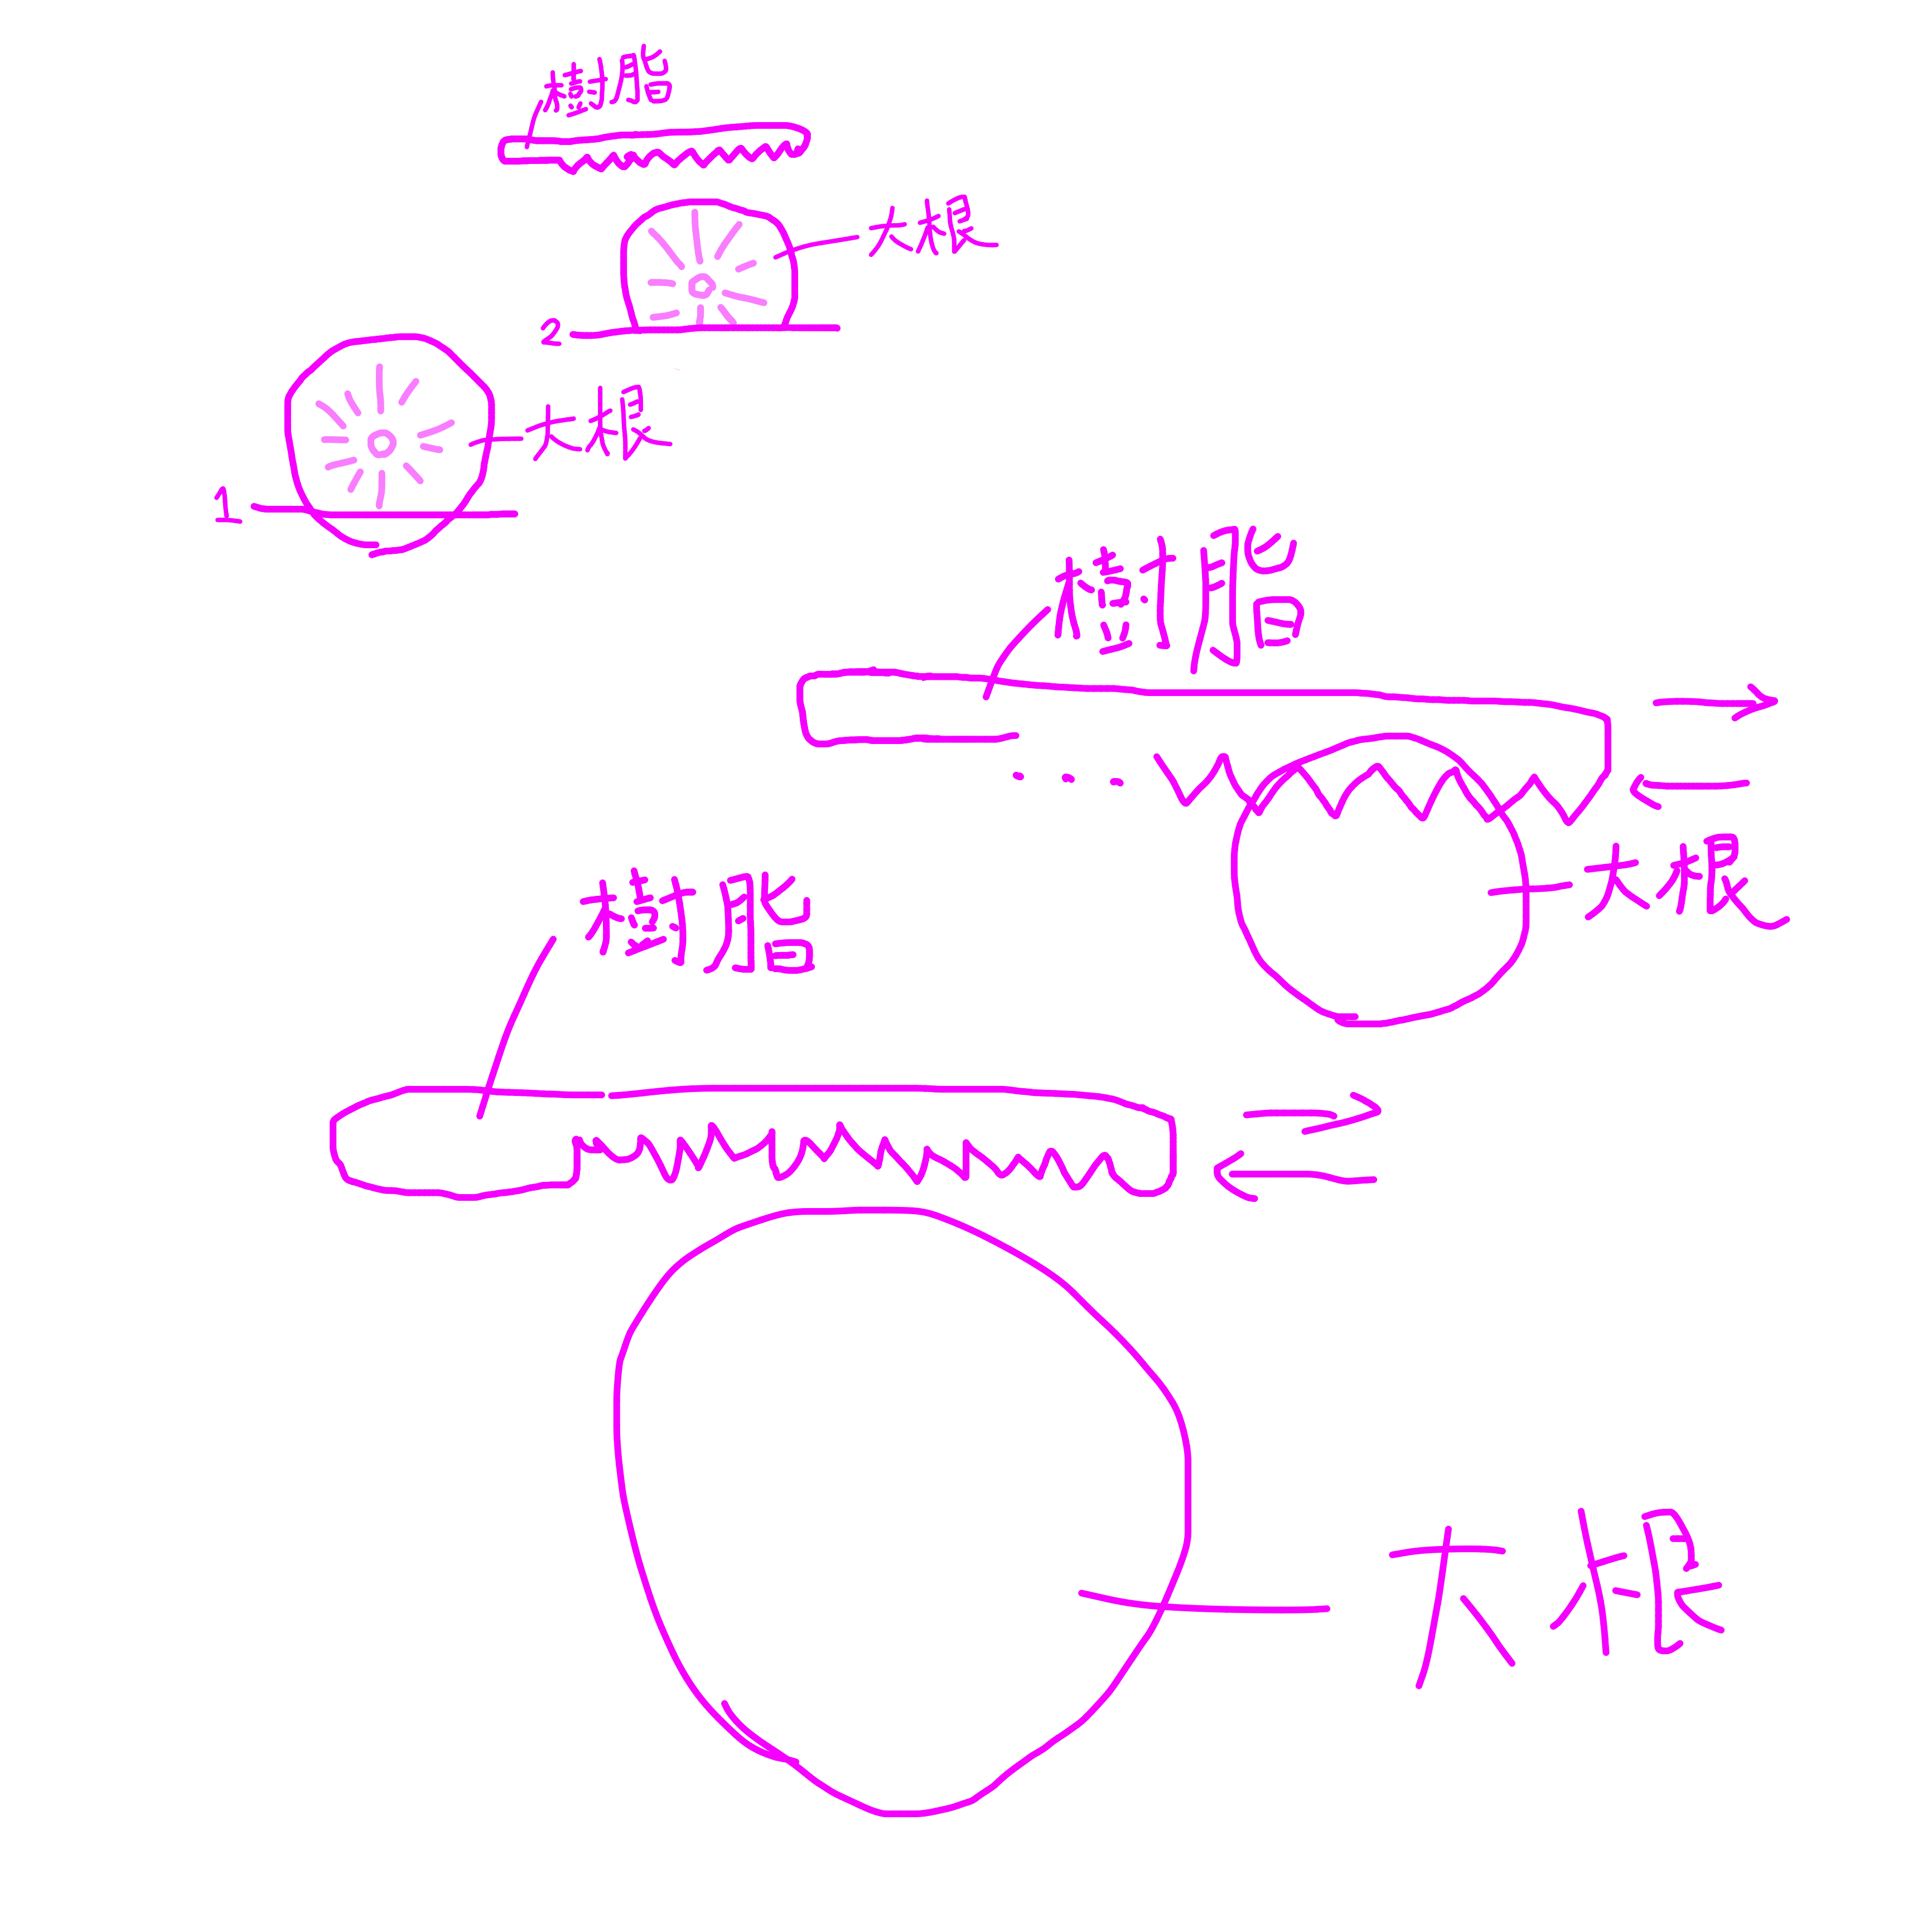 樹脂
大根
2
大根
1
樹脂
大根
樹脂
大根